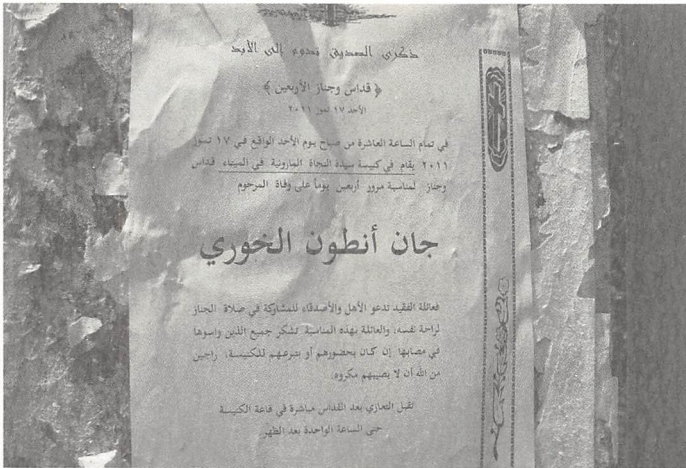 ذكرى الصديق تدوم إلى الأبد
﴿ قداس وجناز الأربعين ﴾
الأحد ١٧ تموز ٢٠١١
في تمام الساعة العاشرة من صباح يوم الأحد الواقع في ١٧ تموز
٢٠١١ يقام في كنيسة سيدة النجاة المارونية في الميناء قداس
وجناز لمناسبة مرور أربعين يوماً على وفاة المرحوم
جان أنطون الخوري
فعائلة الفقيد تدعو الأهل والأصدقاء للمشاركة في صلاة الجناز
لراحة نفسه، والعائلة بهذه المناسبة تشكر جميع الذين واسوها
في مصابها إن كان بحضورهم أو بتبرعهم للكنيسة، راجين
من الله أن لا يصيبهم مكروه.
تقبل التعازي بعد القداس مباشرة في قاعة الكنيسة
حتى الساعة الواحدة بعد الظهر